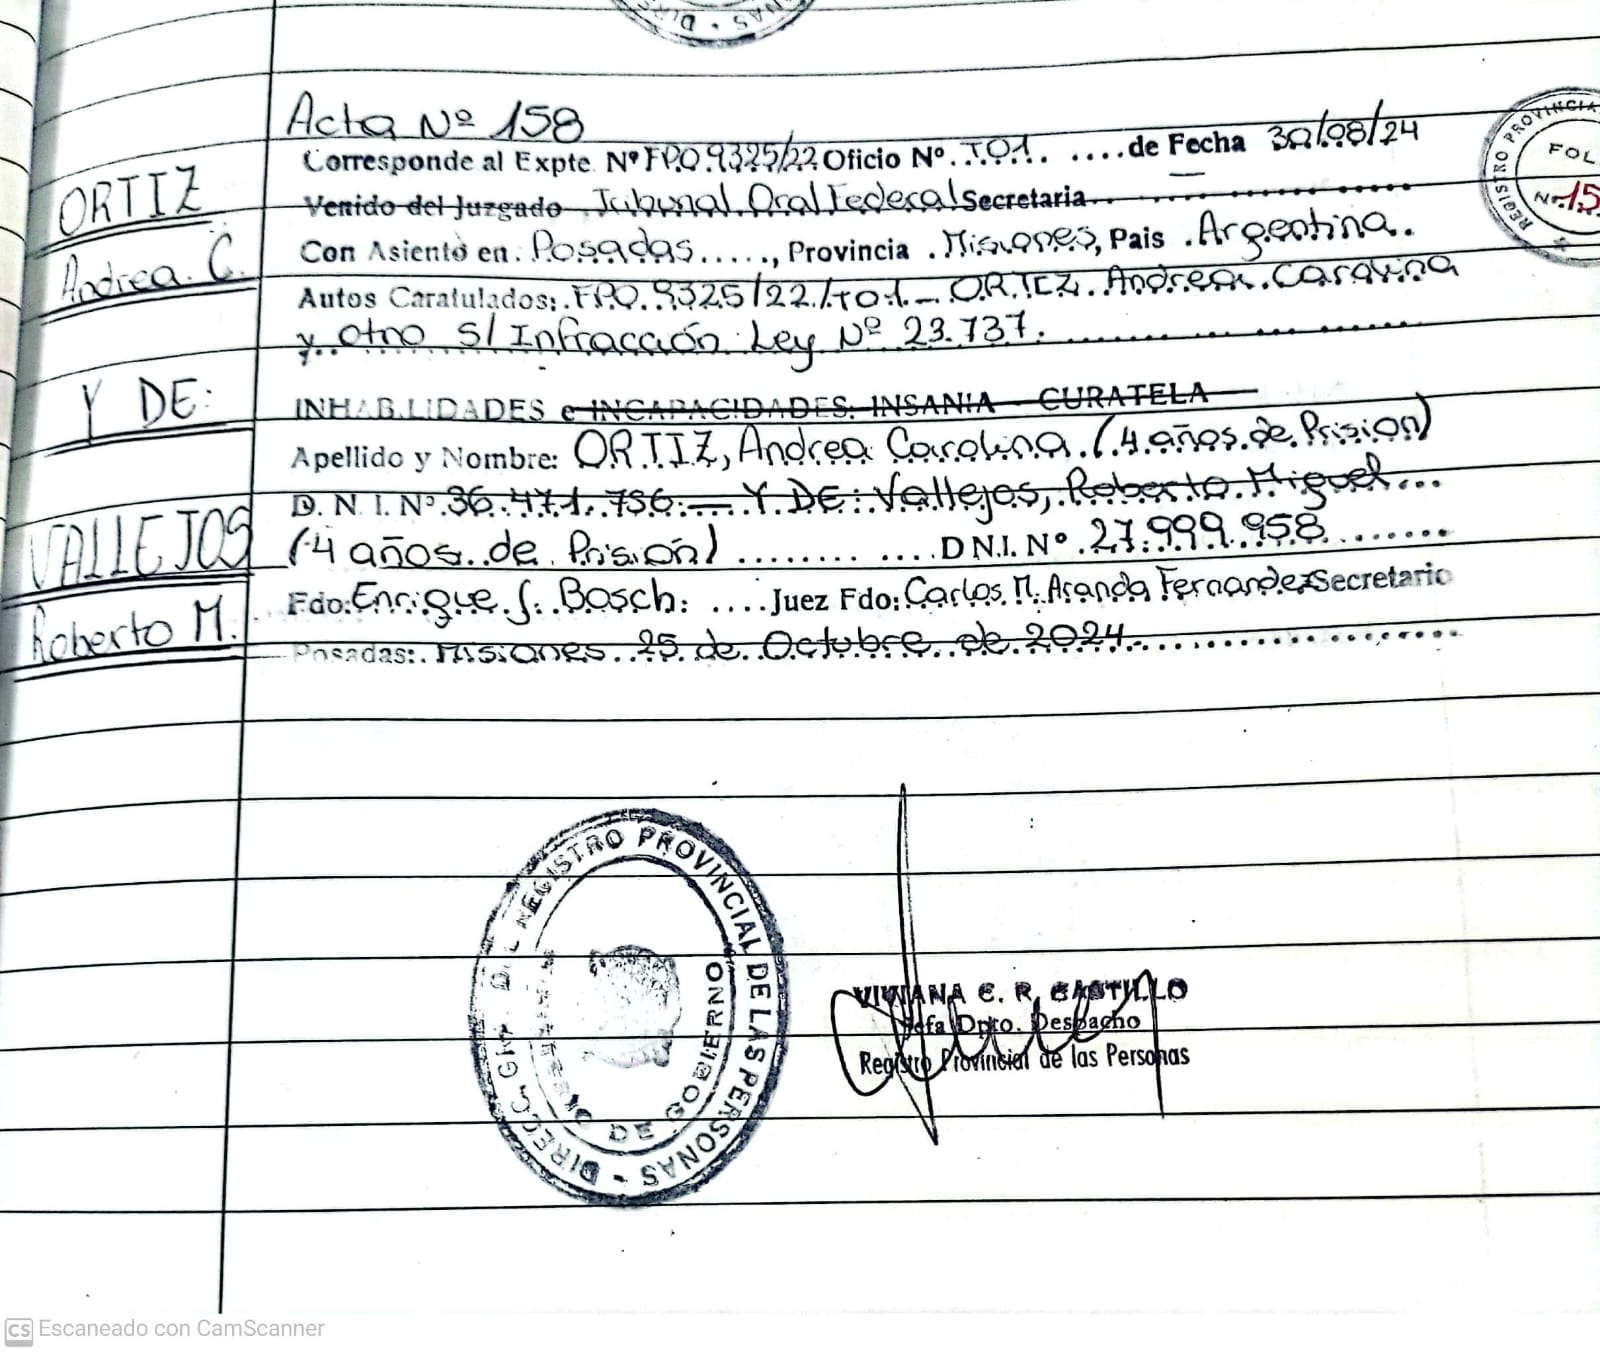 DIREC · SONAS
Acta Nº 158
Corresponde al Expte. Nº FPO.9325/22 Oficio Nº. TO1. .... de Fecha 30/08/24
Venido del Juzgado Tribunal Oral Federal Secretaria
Con Asiento en: Posadas....., Provincia . Misiones, Pais . Argentina..
Autos Caratulados: FPO.9325/22/TO1 – ORTIZ. Andrea. Carolina
y otro S/ Infracción Ley Nº 23.737.
INHABILIDADES e INCAPACIDADES: INSANIA – CURATELA
Apellido y Nombre: ORTIZ, Andrea Carolina. (4 años. de. Prision)
D. N. I. Nº 36.471.756.– Y. DE: Vallejos, Roberto. Miguel...
(4 años. de Prisión) ........ .... D N.I. Nº .27.999.958.......
Fdo: Enrique. J. Bosch. .... Juez Fdo: Carlos. M. Aranda Fernandez Secretario
Posadas: Misiones. 25 de Octubre de 2024.
ORTIZ
Andrea. C.
Y DE:
VALLEJOS
Roberto M.
REGISTRO PROVINCIA
FOL
Nº 15
DIRECC. GRAL DEL REGISTRO PROVINCIAL DE LAS PERSONAS -
DE GOBIERNO
VIVIANA C. R. CASTILLO
Jefa Dpto. Despacho
Registro Provincial de las Personas
CS Escaneado con CamScanner